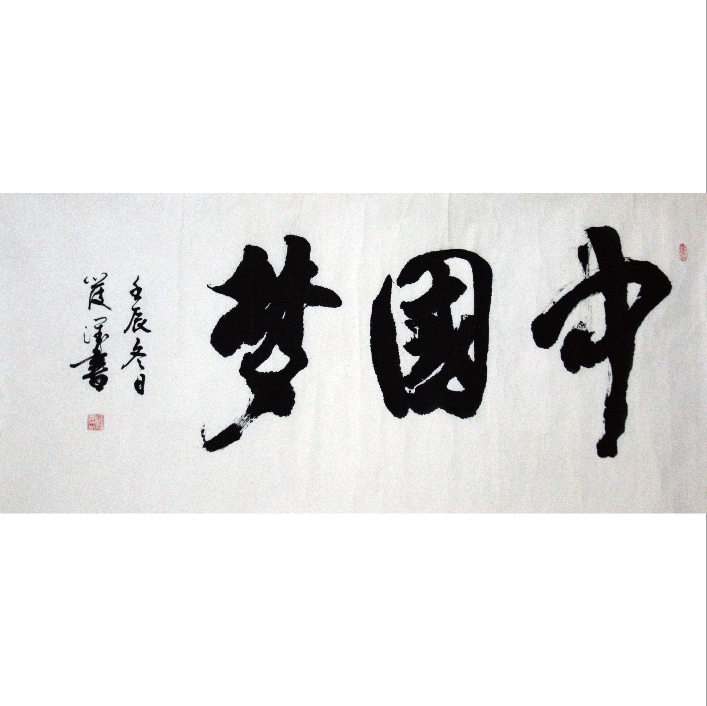 中國梦
壬辰冬日
墨書